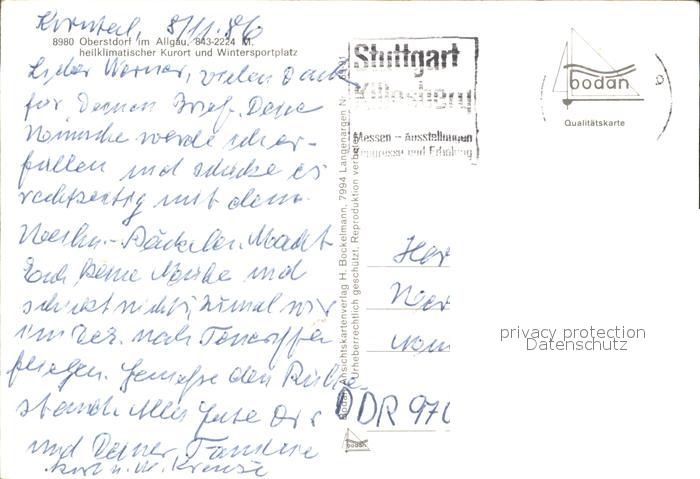 Korntal, 8/11.86
8980 Oberstdorf im Allgäu, 843-2224 M.
heilklimatischer Kurort und Wintersportplatz
Lieber Werner, vielen Dank
für Deinen Brief. Deine
Wünsche werde ich er-
füllen und schicke es
rechtzeitig mit dem
Weihn.-Päckchen. Macht
Euch keine Mühe und
schickt nichts, zumal wir
im Dez. nach Teneriffa
fliegen. Genieße den Ruhe-
stand. Alles Gute Dir
und Deiner Familie
Kurt u.
Stuttgart
Killesberg
Messen - Ausstellungen
Kongresse und Erholung
bodan
Qualitätskarte
bodan Ansichtskartenverlag H. Bockelmann, 7994 Langenargen
Urheberrechtlich geschützt. Reproduktion verboten
DDR 970
bodan
privacy protection
Datenschutz